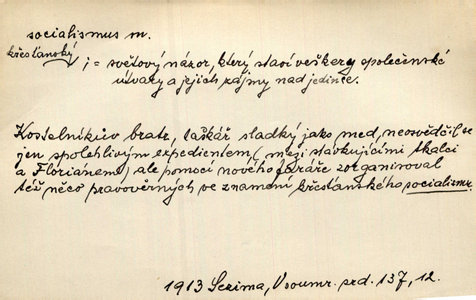 socialismus m.
křesťanský
; = světový názor, který staví veškery společenské
útvary a jejich zájmy nad jedince.
Kostelníkův bratr, taškář sladký jako med, neosvědčil se
jen spolehlivým expedientem (mezi stávkujícími tkalci
a Florianem) ale pomocí nového faráře zorganisoval
též něco pravověrných ve znamení křesťanského socialismu.
1913 Sezima, Vsoumr. srd. 137, 12.